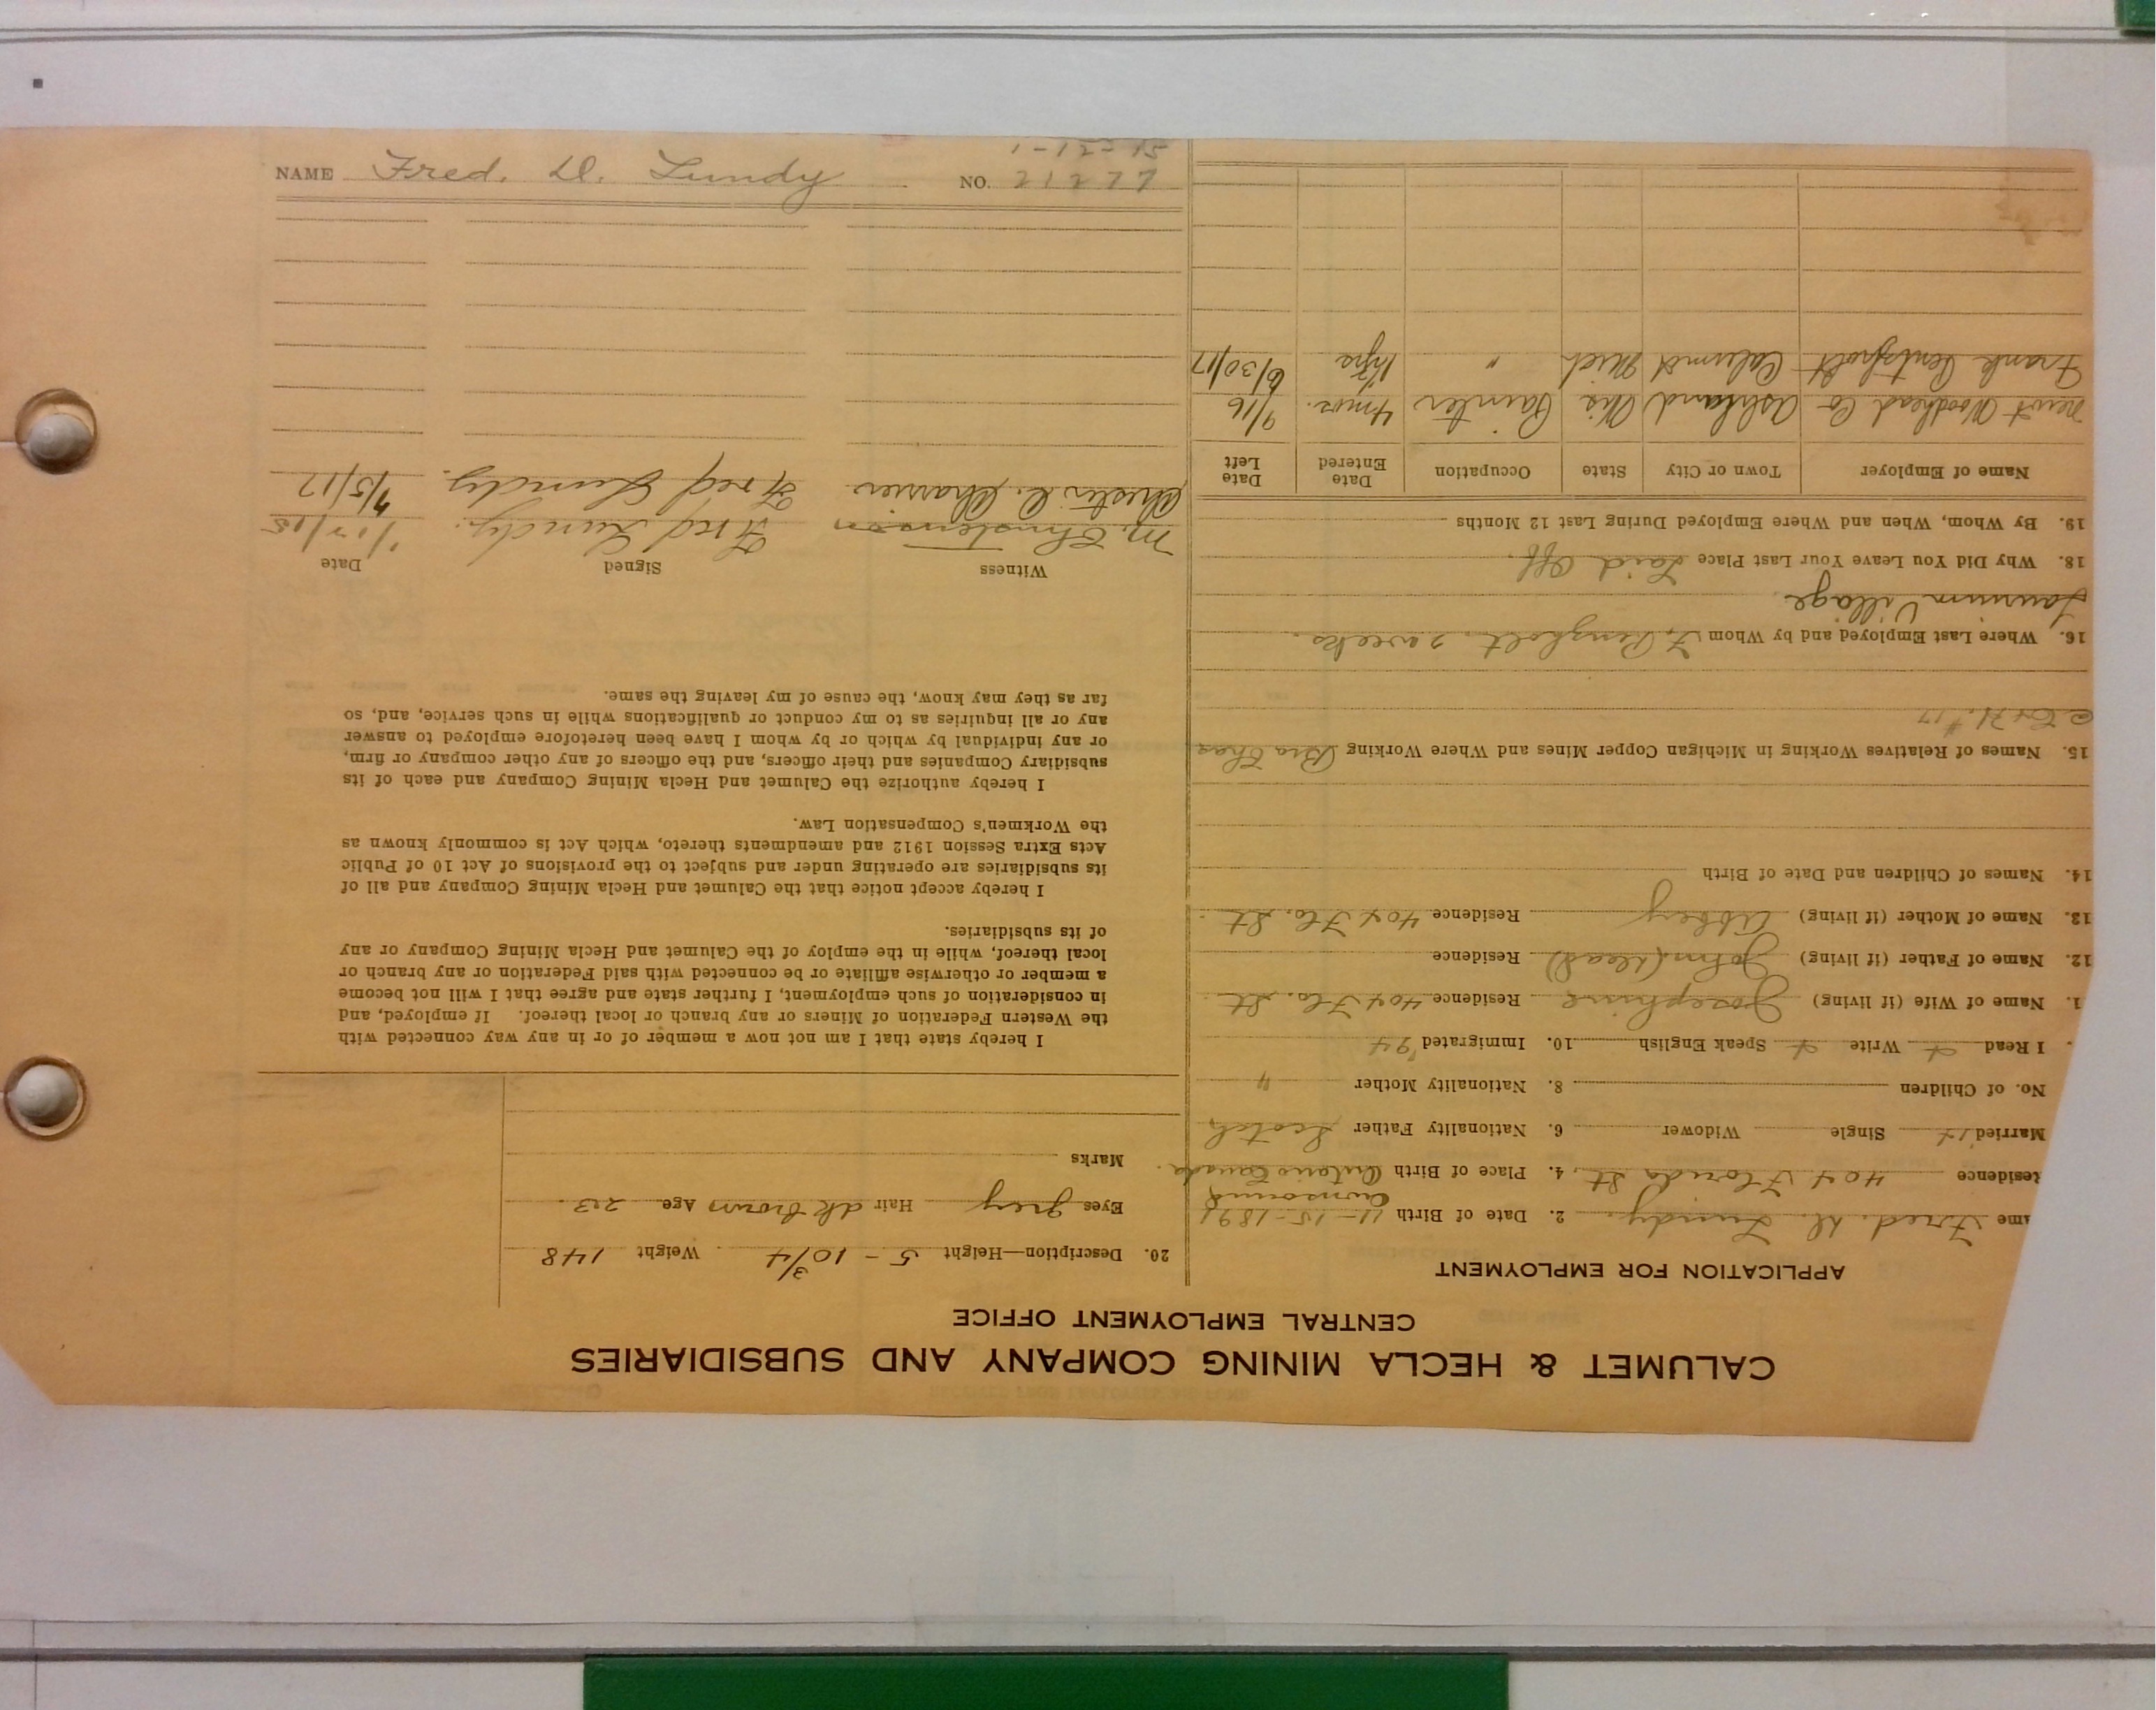 NAME Fred. D. Lundy NO. 21277
1-12-15
CALUMET & HECLA MINING COMPANY AND SUBSIDIARIES
CENTRAL EMPLOYMENT OFFICE
APPLICATION FOR EMPLOYMENT
ame Fred. D. Lundy. 2. Date of Birth 11-15-1891
Residence 404 Florida St. 4. Place of Birth Ontario Canada.
Married Single Widower 6. Nationality Father Scotch
No. of Children 8. Nationality Mother "
. I Read + Write + Speak English 10. Immigrated '94
1. Name of Wife (if living) Josephine Residence 404 Flo. St.
12. Name of Father (if living) John (dead) Residence
13. Name of Mother (if living) Abbey Residence 404 Flo. St.
14. Names of Children and Date of Birth
15. Names of Relatives Working in Michigan Copper Mines and Where Working Bro Chas
C & H. #17
16. Where Last Employed and by Whom 2 weeks.
Laurium Village
18. Why Did You Leave Your Last Place Laid Off.
19. By Whom, When and Where Employed During Last 12 Months
Name of Employer Town or City State Occupation Date Entered Date Left
Woodhead Co Ashland Wis Painter 4 mos. 9/16
Frank Calumet Mich " 6/30/17
20. Description—Height 5 - 10 3/4 Weight 148
Eyes grey Hair dk brown Age 23
Marks
I hereby state that I am not now a member of or in any way connected with
the Western Federation of Miners or any branch or local thereof. If employed, and
in consideration of such employment, I further state and agree that I will not become
a member or otherwise affiliate or be connected with said Federation or any branch or
local thereof, while in the employ of the Calumet and Hecla Mining Company or any
of its subsidiaries.
I hereby accept notice that the Calumet and Hecla Mining Company and all of
its subsidiaries are operating under and subject to the provisions of Act 10 of Public
Acts Extra Session 1912 and amendments thereto, which Act is commonly known as
the Workmen's Compensation Law.
I hereby authorize the Calumet and Hecla Mining Company and each of its
subsidiary Companies and their officers, and the officers of any other company or firm,
or any individual by which or by whom I have been heretofore employed to answer
any or all inquiries as to my conduct or qualifications while in such service, and, so
far as they may know, the cause of my leaving the same.
Witness Signed Date
M. Christenson Fred Lundy. 1/12/15
Chester C. Fred Lundy. 7/5/17